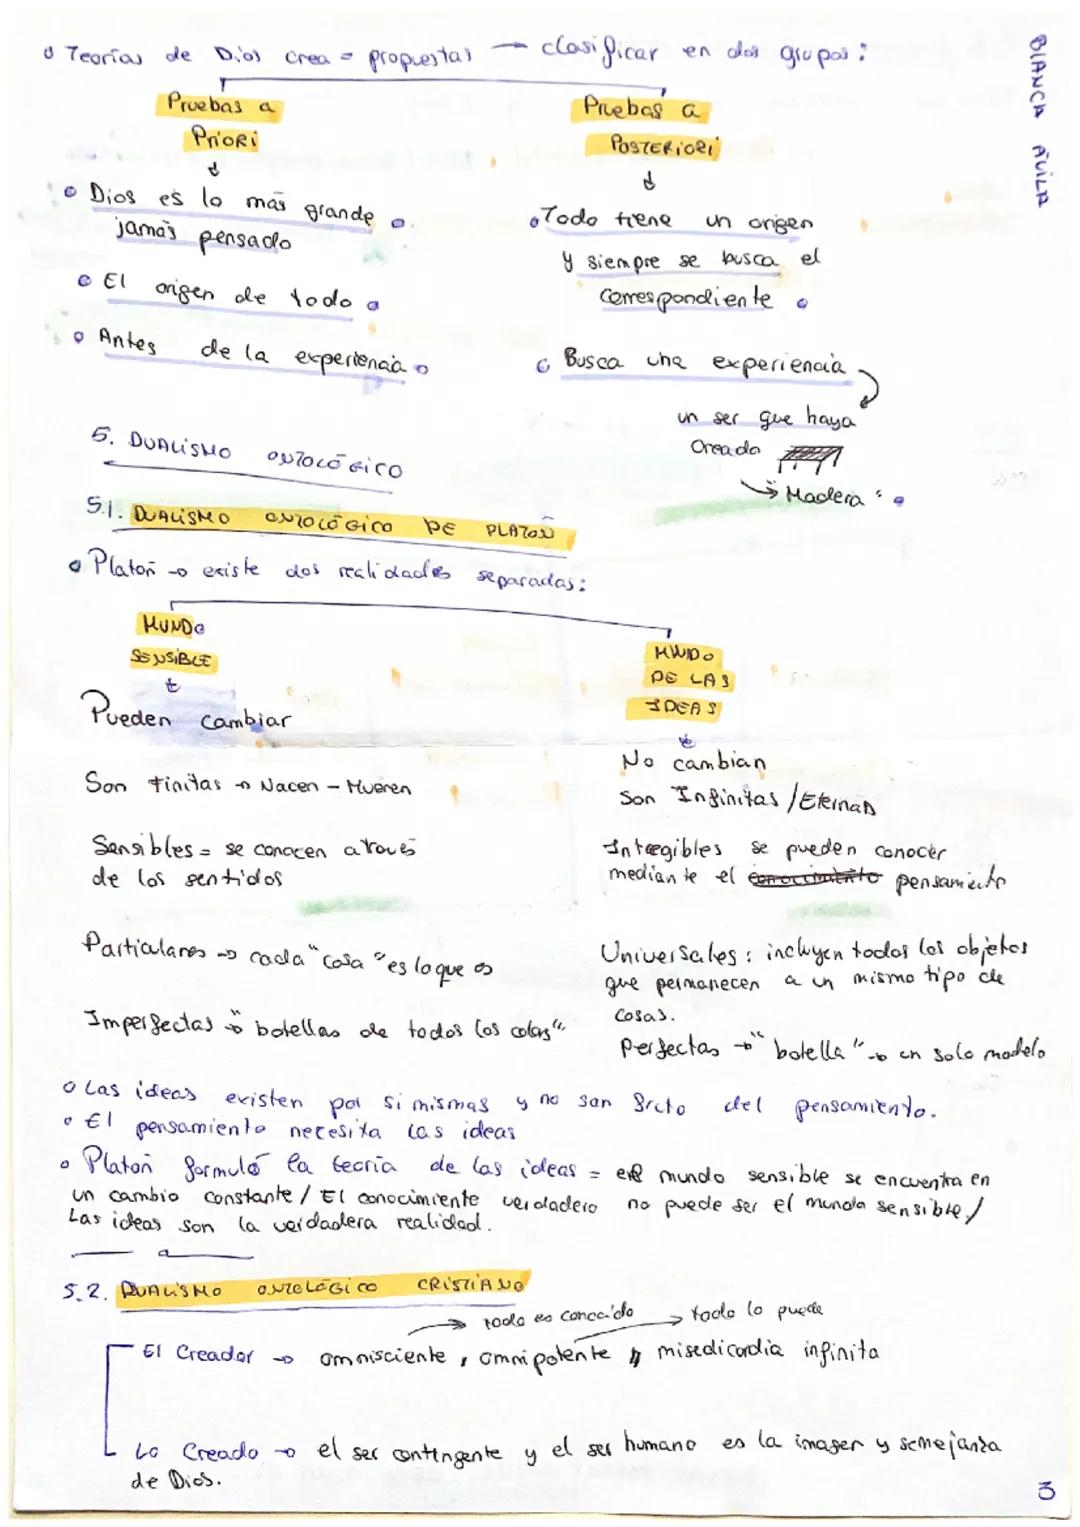 Teorías de Dios crea = propuestas → clasificar en dos grupos:
BIANCA ÁVILA
Pruebas a
PRiORi
Pruebas a
POSTERiORi
Dios es lo más grande
jamás pensado
El origen de todo
Antes de la experiencia
Todo tiene un origen
y siempre se busca el
correspondiente
Busca una experiencia
un ser que haya
creado
→ "Madera"
5. DUALiSMO ONTOLÓGiCO
5.1. DUALiSMO ONTOLÓGiCO DE PLATÓN
Platón → existe dos realidades separadas:
MUNDO
SENSiBLE
Pueden cambiar
Son Finitas → Nacen - Mueren
Sensibles = se conocen através
de los sentidos
Particulares → cada "cosa" es lo que es
Imperfectas → "botellas de todos los colas"
MUNDO
DE LAS
IDEAS
No cambian
Son Infinitas / Eternas
Inteegibles se pueden conocer
mediante el conocimiento pensamiento
Universales: incluyen todos los objetos
que permanecen a un mismo tipo de
cosas.
Perfectas → "botella" → en solo modelo
Las ideas existen por si mismas y no son fruto del pensamiento.
El pensamiento necesita las ideas
Platón formuló la teoría de las ideas = el mundo sensible se encuentra en
un cambio constante / El conocimiente verdadero no puede ser el mundo sensible. /
Las ideas son la verdadera realidad.
5.2. DUALiSMO ONTOLÓGiCO CRiSTiANO
→ todo es conocido → todo lo puede
El Creador → omnisciente, omnipotente y misedicordia infinita
Lo Creado → el ser contingente y el ser humano es la imagen y semejanza
de Dios.
3